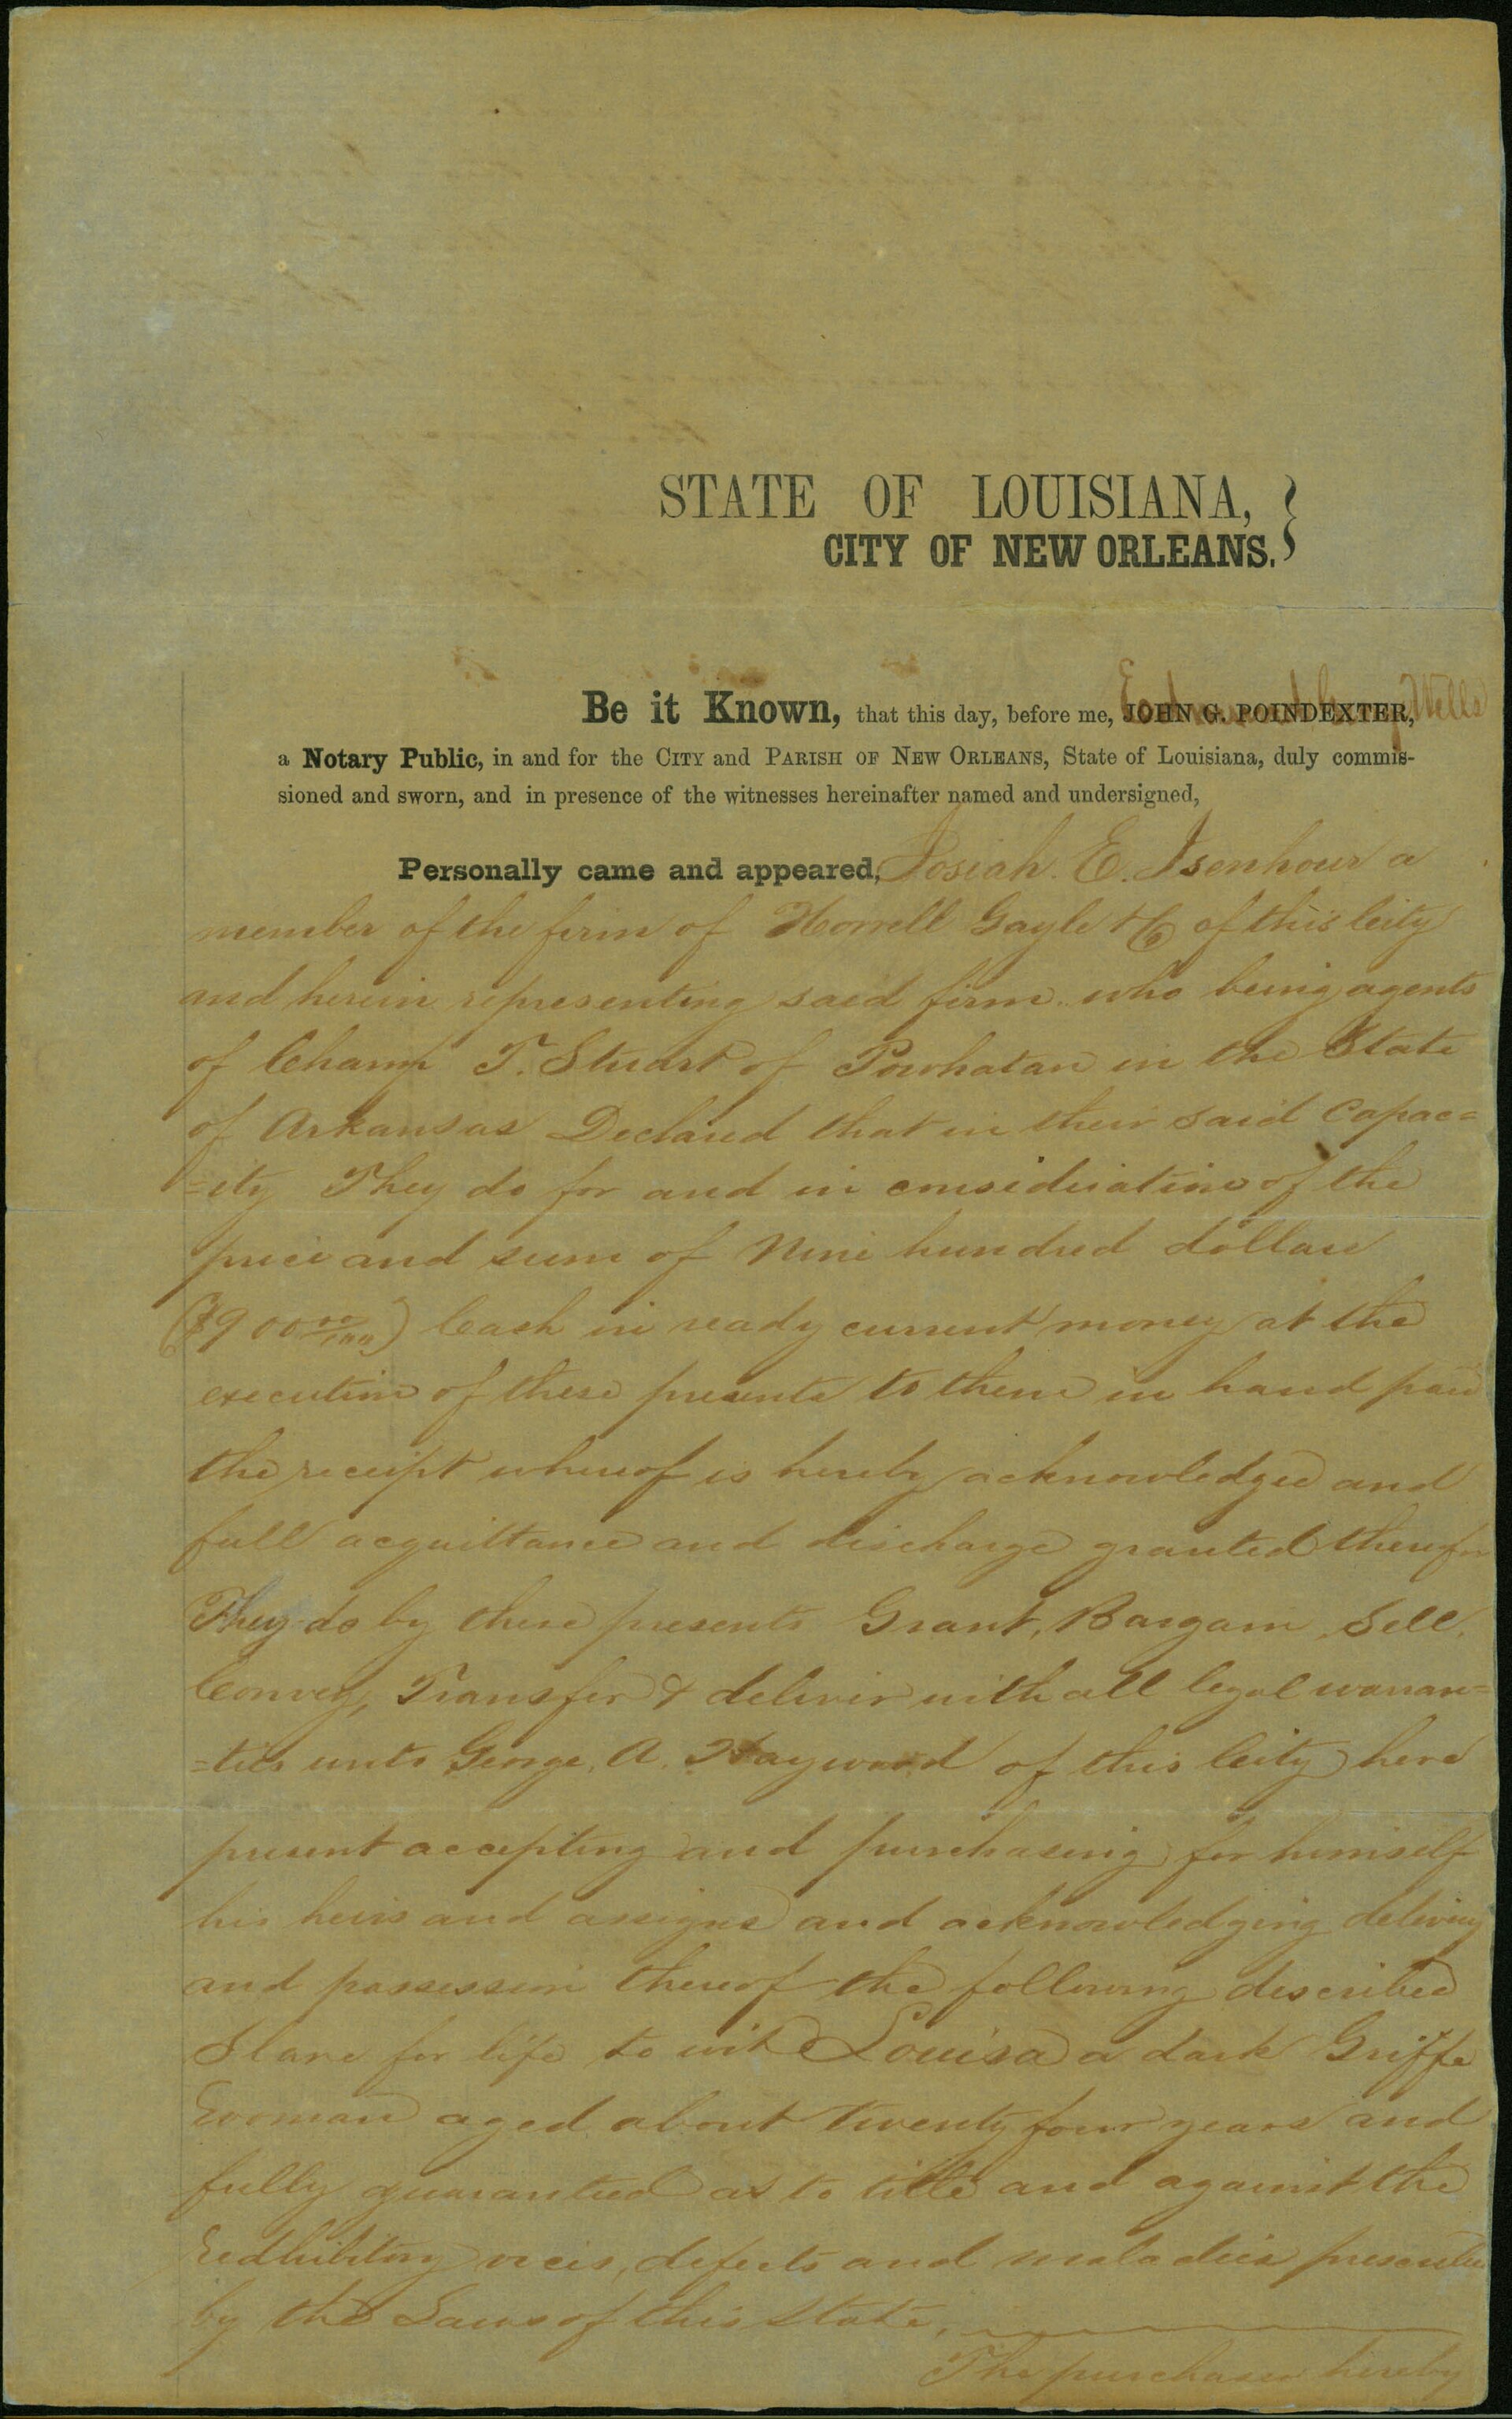 STATE OF LOUISIANA,
CITY OF NEW ORLEANS.
Be it Known, that this day, before me, JOHN G. POINDEXTER, Wells
a Notary Public, in and for the CITY and PARISH OF NEW ORLEANS, State of Louisiana, duly commis-
sioned and sworn, and in presence of the witnesses hereinafter named and undersigned,
Personally came and appeared, Josiah. E. Isenhour a
member of the firm of Horrell Gayle & Co of this City
and herein representing said firm who being agents
of Champ T. Stuart of Powhatan in the State
of Arkansas Declared that in their said Capac=
=ity They do for and in consideration of the
price and sum of Nine hundred dollars
($900 00/100) Cash in ready current money at the
execution of these presents to them in hand paid
the receipt whereof is hereby acknowledged and
full acquittance and discharge granted therefor
They do by these presents Grant, Bargain, Sell,
Convey, Transfer & deliver with all legal warran=
=ties unto George. A. Haywood of this City here
present accepting and purchasing for himself
his heirs and assigns and acknowledging delivery
and possession thereof the following described
Slave for life to wit Louisa a dark Griffe
woman aged about twenty four years and
fully guarantied as to title and against the
redhibitory vices, defects and maladies prescribed
by the Laws of this State,
The purchaser hereby